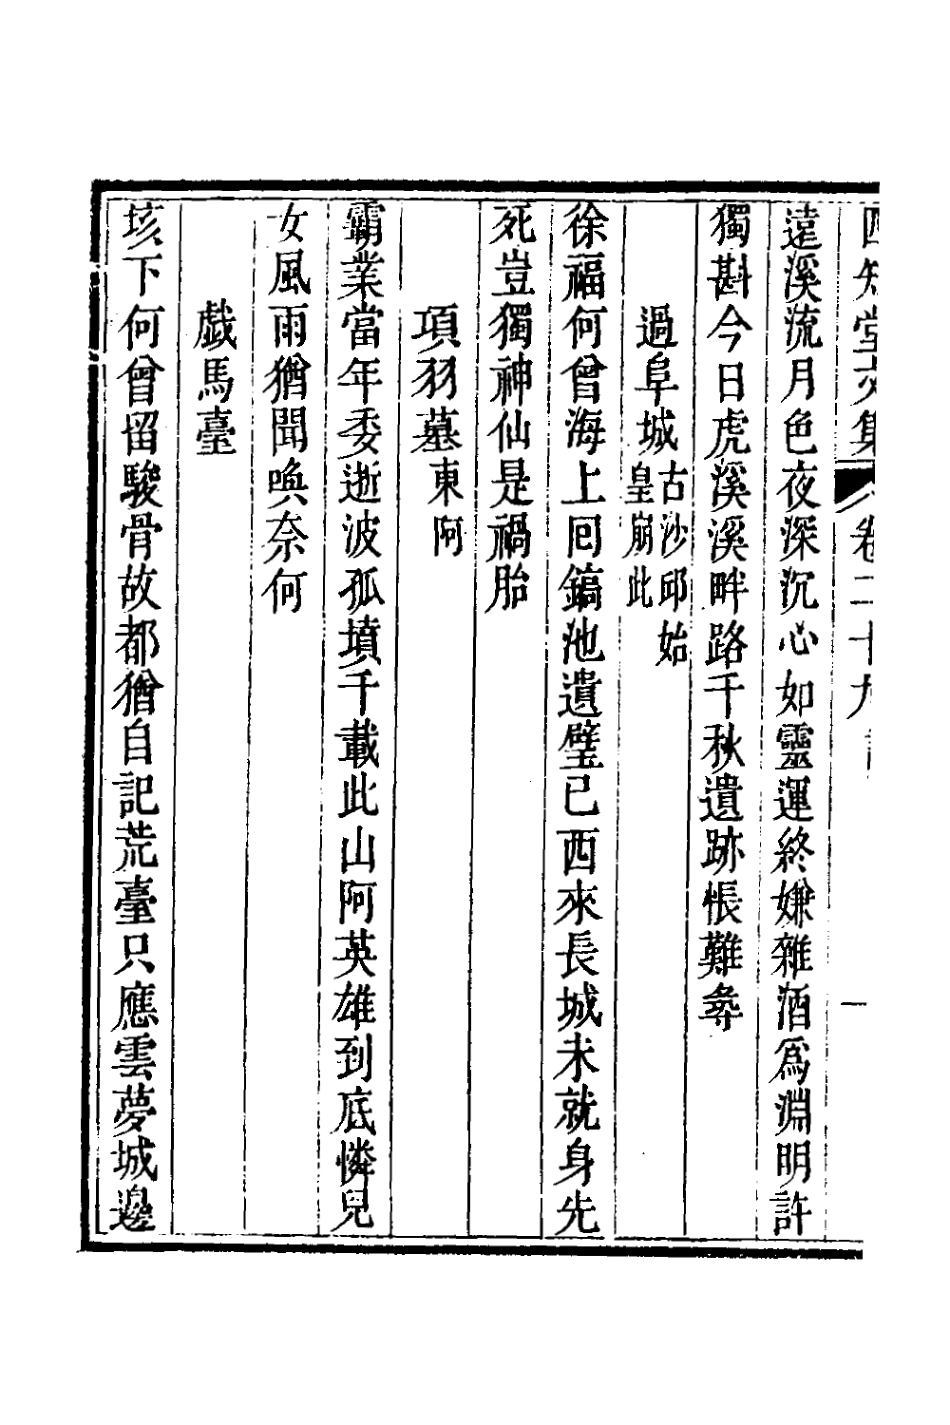 四知堂文集 卷二十九 詩 一
遠溪流月色夜深沉心如靈運終嫌雜酒爲淵明許
獨斟今日虎溪溪畔路千秋遺跡悵難尋
過阜城古沙邱始皇崩此
徐福何曾海上回鎬池遺璧已西來長城未就身先
死豈獨神仙是禍胎
項羽墓東阿
霸業當年委逝波孤墳千載此山阿英雄到底憐兒
女風雨猶聞喚奈何
戲馬臺
垓下何曾留駿骨故都猶自記荒臺只應雲夢城邊